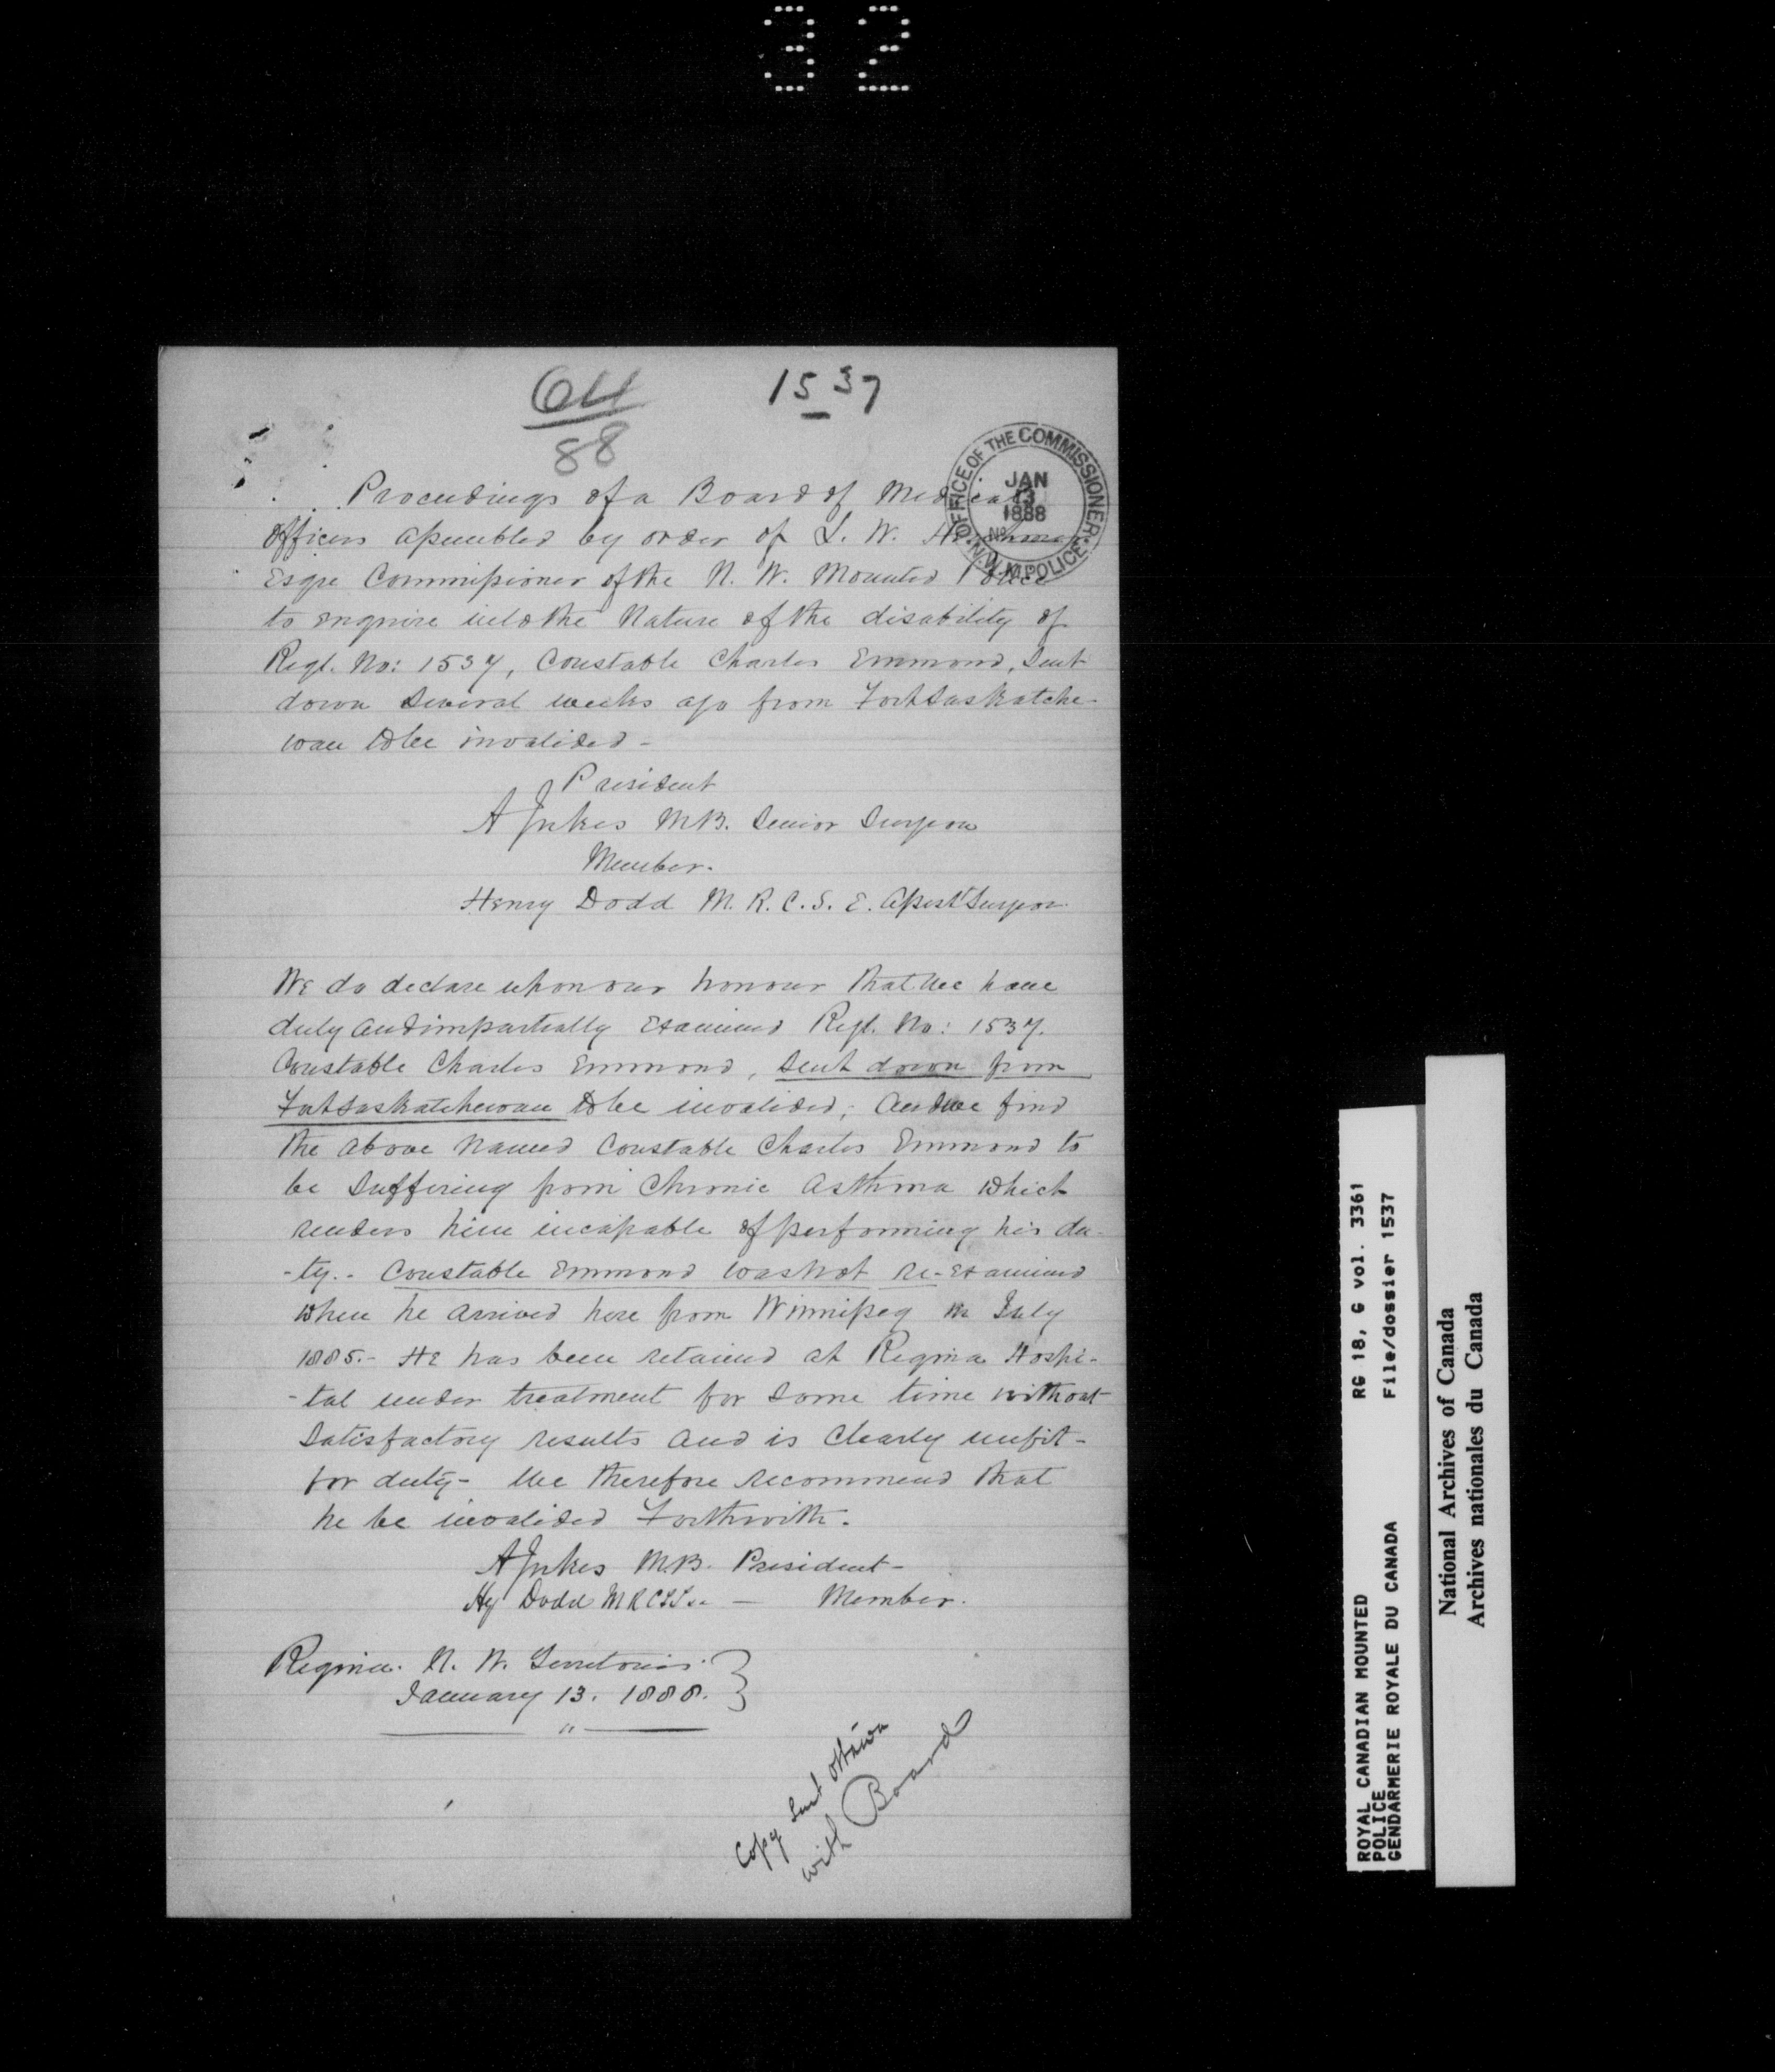 32
64
88
1537
OFFICE OF THE COMMISSIONER
JAN
13
1888
No
N.W.M. POLICE
Proceedings of a Board of Medical
Officers assembled by order of L. W. Herchmer
Esqre Commissioner of the N. W. Mounted Police
to enquire into the Nature of the disability of
Regl. No: 1537, Constable Charles Emmond, Sent
down Several weeks ago from Fort Saskatche-
wan to be invalided -
President
A Jukes M.B. Senior Surgeon
Member.
Henry Dodd M. R. C. S. E. Assist Surgeon
We do declare upon our honour that we have
duly and impartially Examined Regl. No: 1537.
Constable Charles Emmond, Sent down from
Fort Saskatchewan to be invalided; And we find
the above Named Constable Charles Emmond to
be Suffering from Chronic Asthma which
renders him incapable of performing his du-
-ty. - Constable Emmond was not re-Examined
when he arrived here from Winnipeg in July
1885. - He has been retained at Regina Hospi-
-tal under treatment for Some time without
Satisfactory results and is Clearly unfit -
for duty - We therefore recommend that
he be invalided Forthwith.
A Jukes M.B. President -
Hy Dodd - Member.
Regina. N. W. Territories.
January 13. 1888.
Copy Sent Ottawa
with Board
ROYAL CANADIAN MOUNTED RG 18, G vol. 3361
POLICE File/dossier 1537
GENDARMERIE ROYALE DU CANADA
National Archives of Canada
Archives nationales du Canada